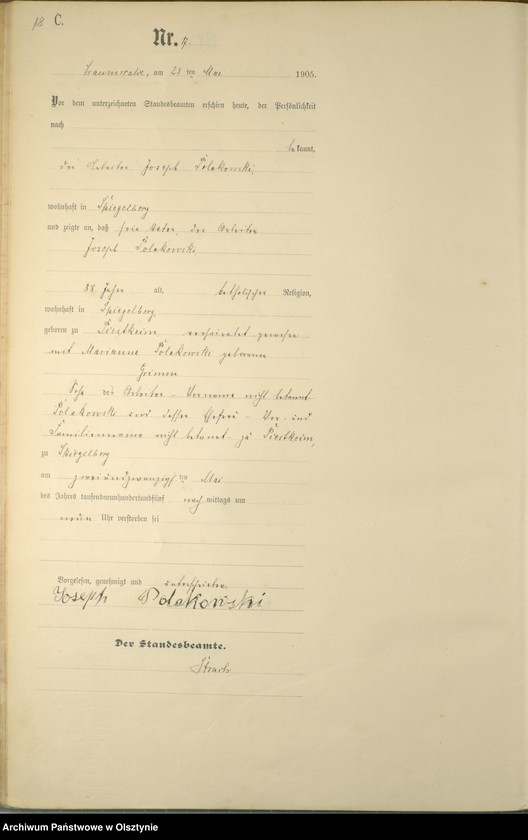 18 C.
Nr. 17.
Braunswalde, am 23 ten Mai 1905.
Vor dem unterzeichneten Standesbeamten erschien heute, der Persönlichkeit
nach
bekannt,
der Arbeiter Joseph Polakowski,
wohnhaft in Spiegelberg
und zeigte an, daß sein Vater, der Arbeiter
Joseph Polakowski
88 Jahre alt, katholischer Religion,
wohnhaft in Spiegelberg,
geboren zu Piestkeim, verheiratet gewesen
mit Marianna Polakowski geborenen
Sohn des Arbeiters – Vorname nicht bekannt
Polakowski und dessen Ehefrau – Vor- und
Familienname nicht bekannt – zu Piestkeim,
zu Spiegelberg
am zweiundzwanzigsten Mai
des Jahres tausendneunhundertundfünf nach mittags um
neun Uhr verstorben sei
Vorgelesen, genehmigt und unterschrieben.
Joseph Polakowski
Der Standesbeamte.
Archiwum Państwowe w Olsztynie